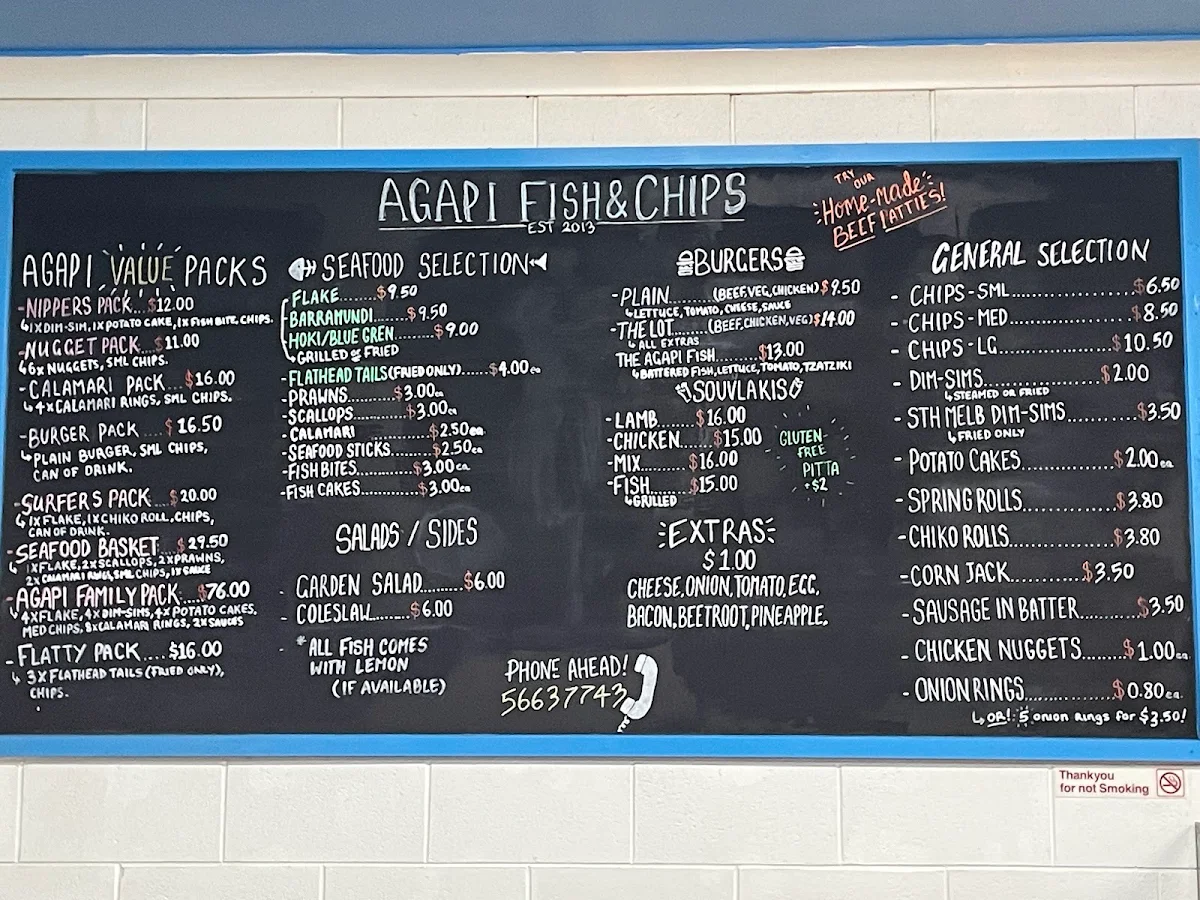 AGAPI FISH & CHIPS
EST 2013
TRY OUR
HOME-MADE
BEEF PATTIES!
AGAPI VALUE PACKS
- NIPPERS PACK... $12.00
1X DIM-SIM, 1X POTATO CAKE, 1X FISH BITE, CHIPS.
- NUGGET PACK... $11.00
6X NUGGETS, SML CHIPS.
- CALAMARI PACK... $16.00
4X CALAMARI RINGS, SML CHIPS.
- BURGER PACK... $16.50
PLAIN BURGER, SML CHIPS,
CAN OF DRINK.
- SURFERS PACK... $20.00
1X FLAKE, 1X CHIKO ROLL, CHIPS,
CAN OF DRINK.
- SEAFOOD BASKET... $29.50
1X FLAKE, 2X SCALLOPS, 2X PRAWNS,
2X CALAMARI RINGS, SML CHIPS, 1X SAUCE
- AGAPI FAMILY PACK... $76.00
4X FLAKE, 4X DIM-SIMS, 4X POTATO CAKES,
MED CHIPS, 8X CALAMARI RINGS, 2X SAUCES
- FLATTY PACK.... $16.00
3X FLATHEAD TAILS (FRIED ONLY),
CHIPS.
SEAFOOD SELECTION
FLAKE........$9.50
BARRAMUNDI......$9.50
HOKI/BLUE GREN......$9.00
GRILLED or FRIED
- FLATHEAD TAILS (FRIED ONLY)......$4.00ea
- PRAWNS.........$3.00ea
- SCALLOPS........$3.00ea
- CALAMARI $2.50ea
- SEAFOOD STICKS......$2.50ea
- FISH BITES..........$3.00ea
- FISH CAKES..........$3.00ea
SALADS / SIDES
- GARDEN SALAD......$6.00
- COLESLALL......$6.00
* ALL FISH COMES
WITH LEMON
(IF AVAILABLE)
PHONE AHEAD!
56637743
BURGERS
- PLAIN........(BEEF, VEG, CHICKEN) $9.50
LETTUCE, TOMATO, CHEESE, SAUCE
- THE LOT......(BEEF, CHICKEN, VEG) $14.00
ALL EXTRAS
THE AGAPI FISH........$13.00
BATTERED FISH, LETTUCE, TOMATO, TZATZIKI
SOUVLAKIS
- LAMB......$16.00
- CHICKEN.....$15.00
- MIX.......$16.00
- FISH.......$15.00
GRILLED
GLUTEN
FREE
PITTA
+$2
EXTRAS
$1.00
CHEESE, ONION, TOMATO, EGG,
BACON, BEETROOT, PINEAPPLE.
GENERAL SELECTION
- CHIPS - SML..................$6.50
- CHIPS - MED..................$8.50
- CHIPS - LG..................$10.50
- DIM-SIMS..................$2.00
STEAMED OR FRIED
- STH MELB DIM-SIMS..........$3.50
FRIED ONLY
- POTATO CAKES..............$2.00ea
- SPRING ROLLS..............$3.80
- CHIKO ROLLS...............$3.80
- CORN JACK...........$3.50
- SAUSAGE IN BATTER.........$3.50
- CHICKEN NUGGETS.........$1.00ea
- ONION RINGS..............$0.80ea
OR! : 5 onion rings for $3.50!
Thankyou
for not Smoking